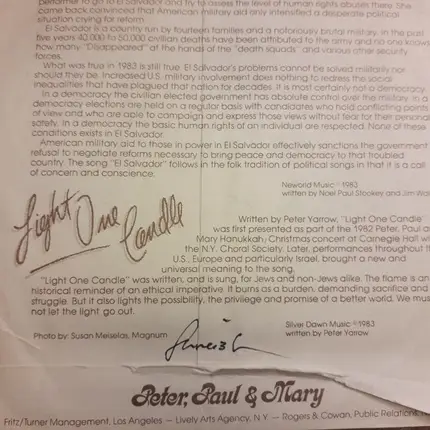 performer to go to El Salvador and try to assess the level of human rights abuses there. She
came back convinced that American military aid only intensified a desperate political
situation crying for reform.
El Salvador is a country run by fourteen families and a notoriously brutal military. In the past
five years 40,000 to 50,000 civilian deaths have been attributed to the army and no one knows
how many "Disappeared" at the hands of the "death squads" and various other security
forces.
What was true in 1983 is still true. El Salvador's problems cannot be solved militarily nor
should they be. Increased U.S. military involvement does nothing to redress the social
inequalities that have plagued that nation for decades. It is most certainly not a democracy.
In a democracy the civilian elected government has absolute control over the military. In a
democracy elections are held on a regular basis with candidates who hold conflicting points
of view and who are able to campaign and express those views without fear for their personal
safety. In a democracy the basic human rights of an individual are respected. None of these
conditions exists in El Salvador.
American military aid to those in power in El Salvador effectively sanctions the government
refusal to negotiate reforms necessary to bring peace and democracy to that troubled
country. The song "El Salvador" follows in the folk tradition of political songs in that it is a call
of concern and conscience.
Neworld Music ©1983
written by Noel Paul Stookey and Jim Wa
Light One Candle
Written by Peter Yarrow, "Light One Candle"
was first presented as part of the 1982 Peter, Paul a
Mary Hanukkah/Christmas concert at Carnegie Hall wi
the N.Y. Choral Society. Later, performances throughout t
U.S., Europe and particularly Israel, brought a new and
universal meaning to the song.
"Light One Candle" was written, and is sung, for Jews and non-Jews alike. The flame is an
historical reminder of an ethical imperative. It burns as a burden, demanding sacrifice and
struggle. But it also lights the possibility, the privilege and promise of a better world. We mus
not let the light go out.
Silver Dawn Music ©1983
written by Peter Yarrow
Photo by: Susan Meiselas, Magnum
Peter, Paul & Mary
Fritz/Turner Management, Los Angeles — Lively Arts Agency, N.Y. — Rogers & Cowan, Public Relations,